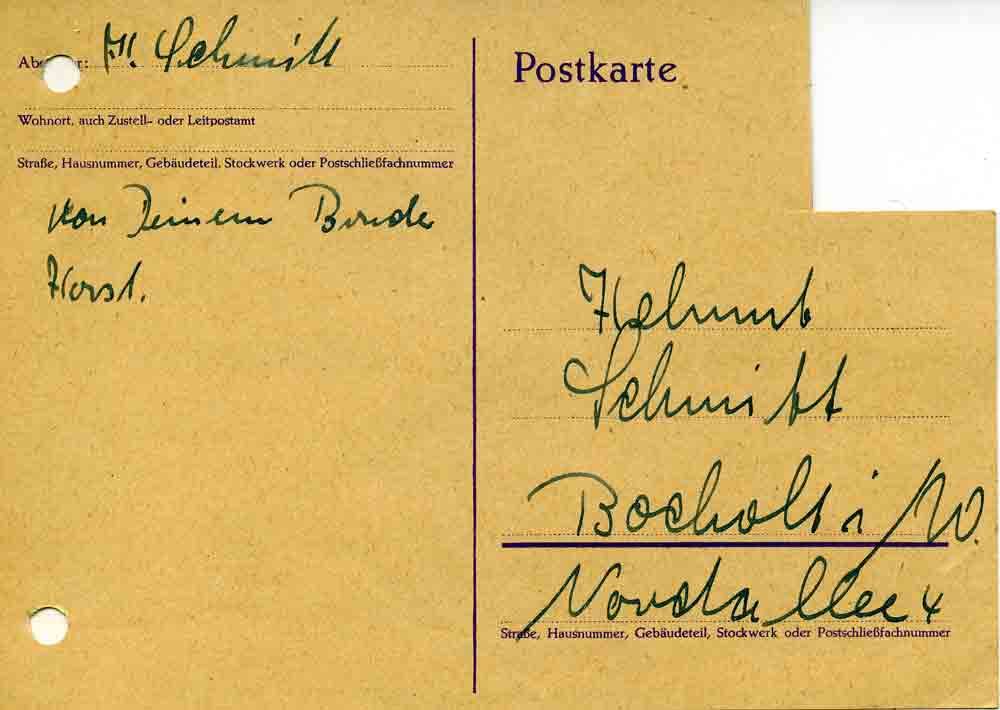 Abs r: H. Schmitt
Wohnort, auch Zustell- oder Leitpostamt
Straße, Hausnummer, Gebäudeteil, Stockwerk oder Postschließfachnummer
von Deinem Bruder
Horst.
Postkarte
Helmut
Schmitt
Bocholt i W.
Nordallee 4
Straße, Hausnummer, Gebäudeteil, Stockwerk oder Postschließfachnummer